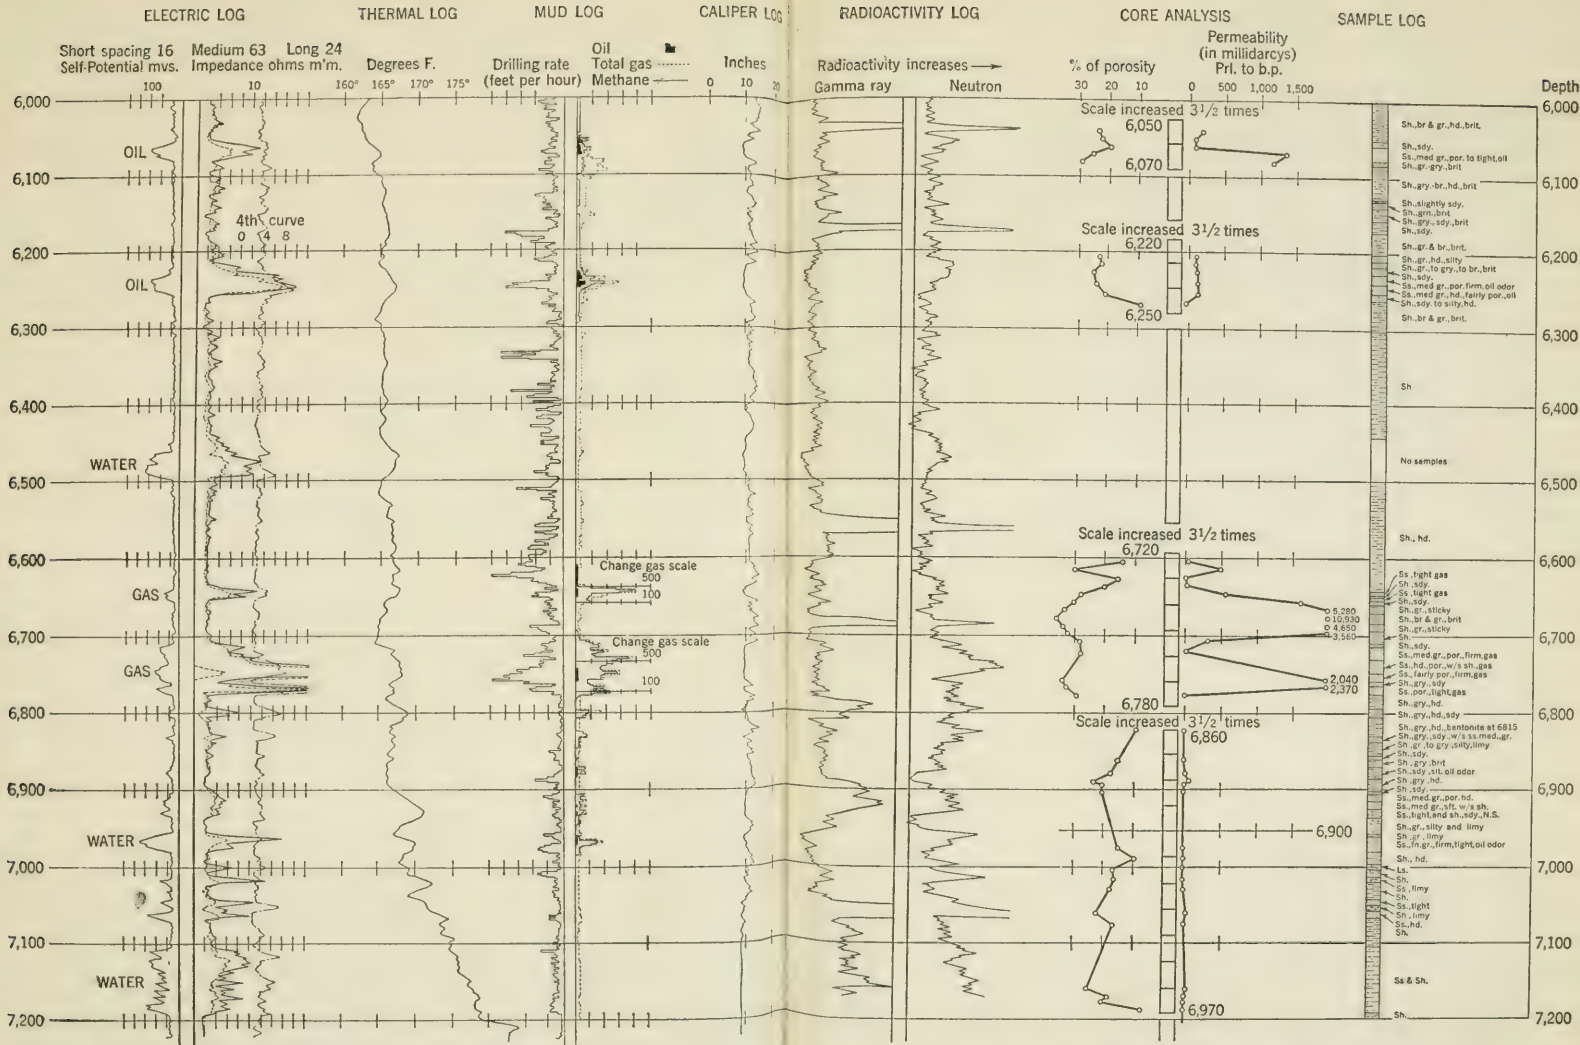 ELECTRIC LOG THERMAL LOG MUD LOG CALIPER LOG RADIOACTIVITY LOG CORE ANALYSIS SAMPLE LOG
Short spacing 16 Medium 63 Long 24
Self-Potential mvs. Impedance ohms m'm.
100 10
Degrees F.
160° 165° 170° 175°
Drilling rate
(feet per hour)
Oil
Total gas
Methane
Inches
0 10 20
Radioactivity increases
Gamma ray Neutron
% of porosity
30 20 10
Permeability
(in millidarcys)
Prl. to b.p.
0 500 1,000 1,500
Depth
6,000
6,100
6,200
6,300
6,400
6,500
6,600
6,700
6,800
6,900
7,000
7,100
7,200
OIL
4th curve
0 4 8
OIL
WATER
GAS
GAS
WATER
WATER
Change gas scale
500
100
Change gas scale
500
100
Scale increased 3 1/2 times
6,050
6,070
Scale increased 3 1/2 times
6,220
6,250
Scale increased 3 1/2 times
6,720
5,280
10,930
4,650
3,560
2,040
2,370
6,780
Scale increased 3 1/2 times
6,860
6,900
6,970
Sh.,br & gr.,hd.,brit.
Sh.,sdy.
Ss.,med gr.,por. to tight,oil
Sh.,gr.-gry.,brit
Sh.,gry.-br.,hd.,brit
Sh.,slightly sdy.
Sh.,grn.,brit
Sh.,gry.,sdy.,brit
Sh.,sdy.
Sh.,gr.& br.,brit.
Sh.,gr.,hd.,silty
Sh.,gr.,to gry.,to br.,brit
Sh.,sdy.
Ss.,med gr.,por.firm,oil odor
Ss.,med gr.,hd.,fairly por.,oil
Sh.,sdy. to silty,hd.
Sh.,br & gr.,brit.
Sh
No samples
Sh., hd.
Ss.,tight gas
Sh.,sdy.
Ss.,tight gas
Sh.,sdy.
Sh.,gr.,sticky
Sh.,br & gr.,brit
Sh.,gr.,sticky
Sh.
Sh.,sdy.
Ss.,med.gr.,por.,firm,gas
Ss.,hd.,por.,w/s sh.,gas
Ss.,fairly por.,firm,gas
Sh.,gry.,sdy
Ss.,por.,tight,gas
Sh.,gry.,hd.
Sh.,gry.,hd.,sdy
Sh.,gry.,hd.,bentonite at 6815
Sh.,gry.,sdy.,w/s ss.med.,gr.
Sh.,gr to gry.,silty,limy
Sh.,sdy.
Sh.,gry.,brit
Sh.,sdy.,slt. oil odor
Sh.,gry.,hd.
Sh.,sdy.
Ss.,med.gr.,por.hd.
Ss.,med gr.,sft. w/s sh.
Ss.,tight,and sh.,sdy.,N.S.
Sh.,gr.,silty and limy
Sh.,gr.,limy
Ss.,fn.gr.,firm,tight,oil odor
Sh., hd.
Ls.
Sh.
Ss.,limy
Sh.
Ss.,tight
Sh.,limy
Ss.,hd.
Sh.
Ss & Sh.
Sh.
6,000
6,100
6,200
6,300
6,400
6,500
6,600
6,700
6,800
6,900
7,000
7,100
7,200